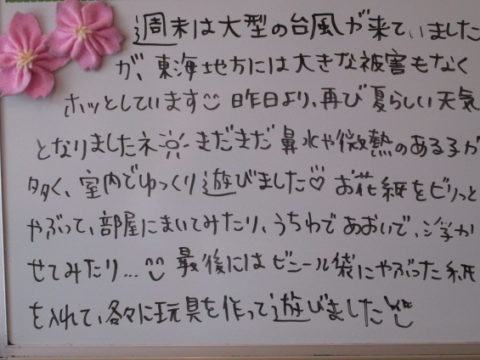 週末は大型の台風が来ていました
が、東海地方には大きな被害もなく
ホッとしています 昨日より、再び夏らしい天気
となりましたネ まだまだ鼻水や微熱のある子が
多く、室内でゆっくり遊びました♡ お花紙をビリっと
やぶって、部屋にまいてみたり、うちわであおいで、浮か
せてみたり... 最後にはビニール袋にやぶった紙
を入れて、各々に玩具を作って遊びました